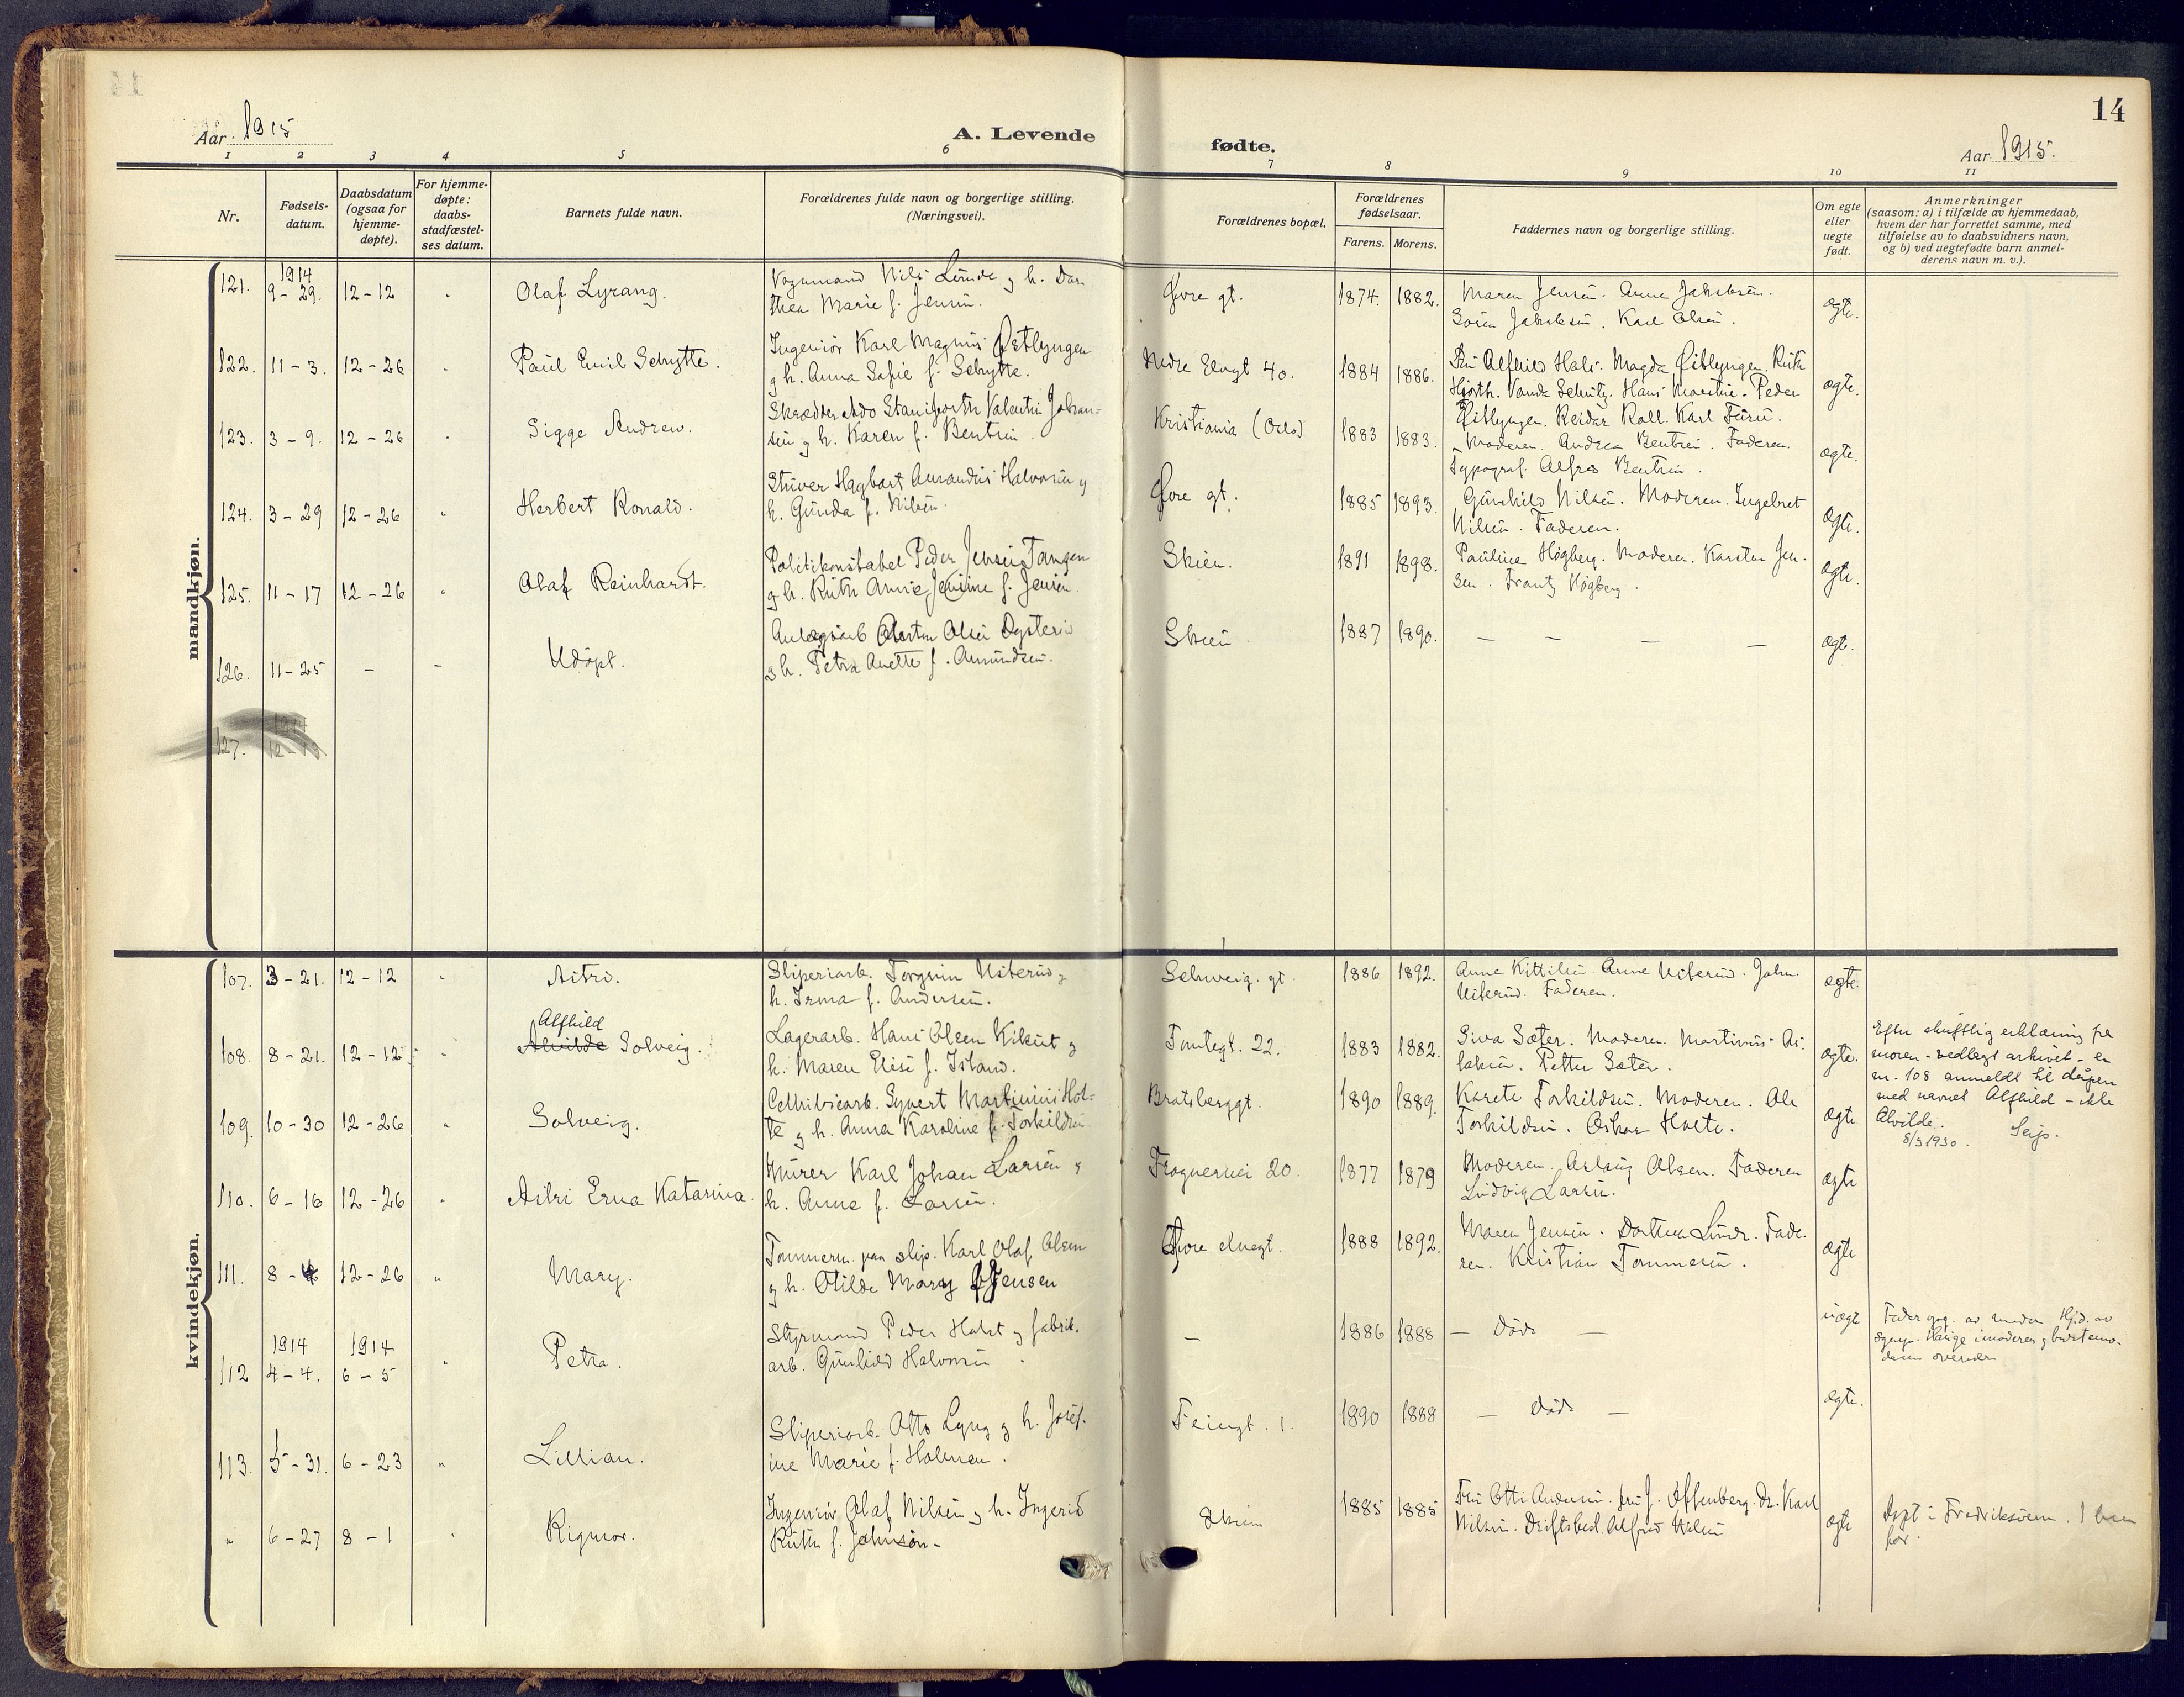 14
Aar 1915
A. Levende
fødte.
Aar 1915.
1 2 3 4 5 6 7 8 9 10 11
Nr.
Fødsels-
datum.
Daabsdatum
(ogsaa for
hjemme-
døpte).
For hjemme-
døpte:
daabs-
stadfæstel-
ses datum.
Barnets fulde navn.
Forældrenes fulde navn og borgerlige stilling.
(Næringsvei).
Forældrenes bopæl.
Forældrenes
fødselsaar.
Farens. Morens.
Faddernes navn og borgerlige stilling.
Om egte
eller
uegte
født.
Anmerkninger
(saasom: a) i tilfælde av hjemmedaab,
hvem der har forrettet samme, med
tilføielse av to daabsvidners navn,
og b) ved uegtefødte barn anmel-
derens navn m. v.).
mandkjøn.
1914
121. 9-29. 12-12 " Olaf Lyrang.
Vognmand Nils Lunde g h. Dor-
thea Marie f. Jensen.
Øvre gt. 1874. 1882.
Maren Jensen. Anna Jakobsen.
Søren Jakobsen. Karl Olsen.
ægte.
122. 11-3. 12-26 " Paul Emil Schytte.
Ingeniør Karl Magnus Østlyngen
g h. Anna Sofie f. Schytte.
Nedre Elvegt 40. 1884 1886.
Fru Alfhild Hals. Magda Østlyngen. Ruth
Hjorth. Vanda Schultz. Hans Peder
Østlyngen. Reidar Roll. Karl
ægte.
123. 3-9. 12-26 " Sigge Andrew.
Skrædder Staniforth Valentin Johan-
sen g h. Karen f. Bentsen.
Kristiania (Oslo) 1883 1883.
Moderen. Andrea Bentsen. Faderen.
Typograf. Alfred Bentsen.
ægte.
124. 3-29 12-26 " Herbert Ronald.
Stuver Hagbart Amandus Halvorsen g
h. Gunda f. Nilsen.
Øvre gt. 1885 1893.
Gunhild Nilsen. Moderen. Ingebret
Nilsen. Faderen.
ægte.
125. 11-17 12-26 " Olaf Reinhardt.
Politikonstabel Peder Jensen Tangen
g h. Ruth Annie Jensine f. Jensen.
Skien. 1891 1898.
Pauline Høgberg. Moderen. Karsten Jen-
sen. Frantz Høgberg.
ægte.
126. 11-25 - - Udøpt.
Anlægsarb Olsen
g h. Petra Anette f. Amundsen.
Skien 1887 1890. - - - -
ægte.
1914
127. 12-13
kvindekjøn.
107. 3-21. 12-12 " Astri.
Sliperiarb. Torgrim g
h. Irma f. Andersen.
Schweig. gt. 1886 1892.
Anne Kittilsen Anne Johan
Faderen.
ægte.
Alfhild
108. 8-21. 12-12 " Alvilde Solveig.
Lagerarb. Hans Olsen Kikut g
h. Maren Elise f. Island.
Tomtegt. 22. 1883 1882.
Siva Sæter. Moderen. Martinius As-
laksen. Petter Sæter.
ægte.
Efter skriftlig erklæring fra
moren - vedlagt arkivet - er
nr. 108 anmeldt til dåpen
med navnet Alfhild - ikke
Alvilde.
8/3 1930. Seip.
109. 10-30 12-26 " Solveig.
Cellulosearb. Syvert Martinius Hol-
te g h. Anna Karoline f. Torkildsen
Bratsberggt. 1890 1889.
Karete Torkildsen. Moderen. Ole
Torkildsen. Oskar Holte.
ægte
110. 6-16 12-26 " Astri Erna Katarina.
Murer Karl Johan Larsen g
h. Anna f. Larsen.
Frognervei 20. 1877 1879
Moderen. Aslaug Olsen. Faderen
Ludvig Larsen.
ægte
111. 8-4 12-26 " Mary.
Tømmerm. paa slip. Karl Olaf Olsen
g h. Otilde Mary f Jensen
Øvre elvegt. 1888 1892.
Maren Jensen. Dorthea Lunde. Fade-
ren. Kristian Tommesen.
ægte
1914 1914
112 4-4. 6-5 " Petra.
Styrmand Peder Holst g fabrik.
arb. Gunhild Halvorsen.
- 1886 1888 - Død -
uægte
Fader opg. av moder
113. 5-31. 6-23 " Lillian.
Sliperiarb. Otto Lyng g h. Josef-
ine Marie f. Holmen.
Feiergt. 1. 1890 1888 - Død -
ægte.
" 6-27 8-1 " Rigmor.
Ingeniør Olaf Nilsen g h. Ingerid
Ruth f. Johnson.
Skien 1885 1885
Fru Otti Andersen. fru J. Offenberg. Dr. Karl
Nilsen. Driftsbest. Alfred Nilsen
ægte
døpt i Fredriksværn.